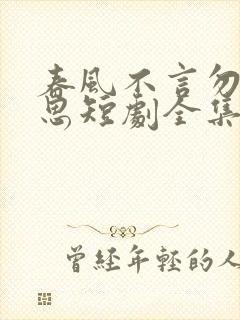 春風不言勿
思短劇全集
曾經年輕的人